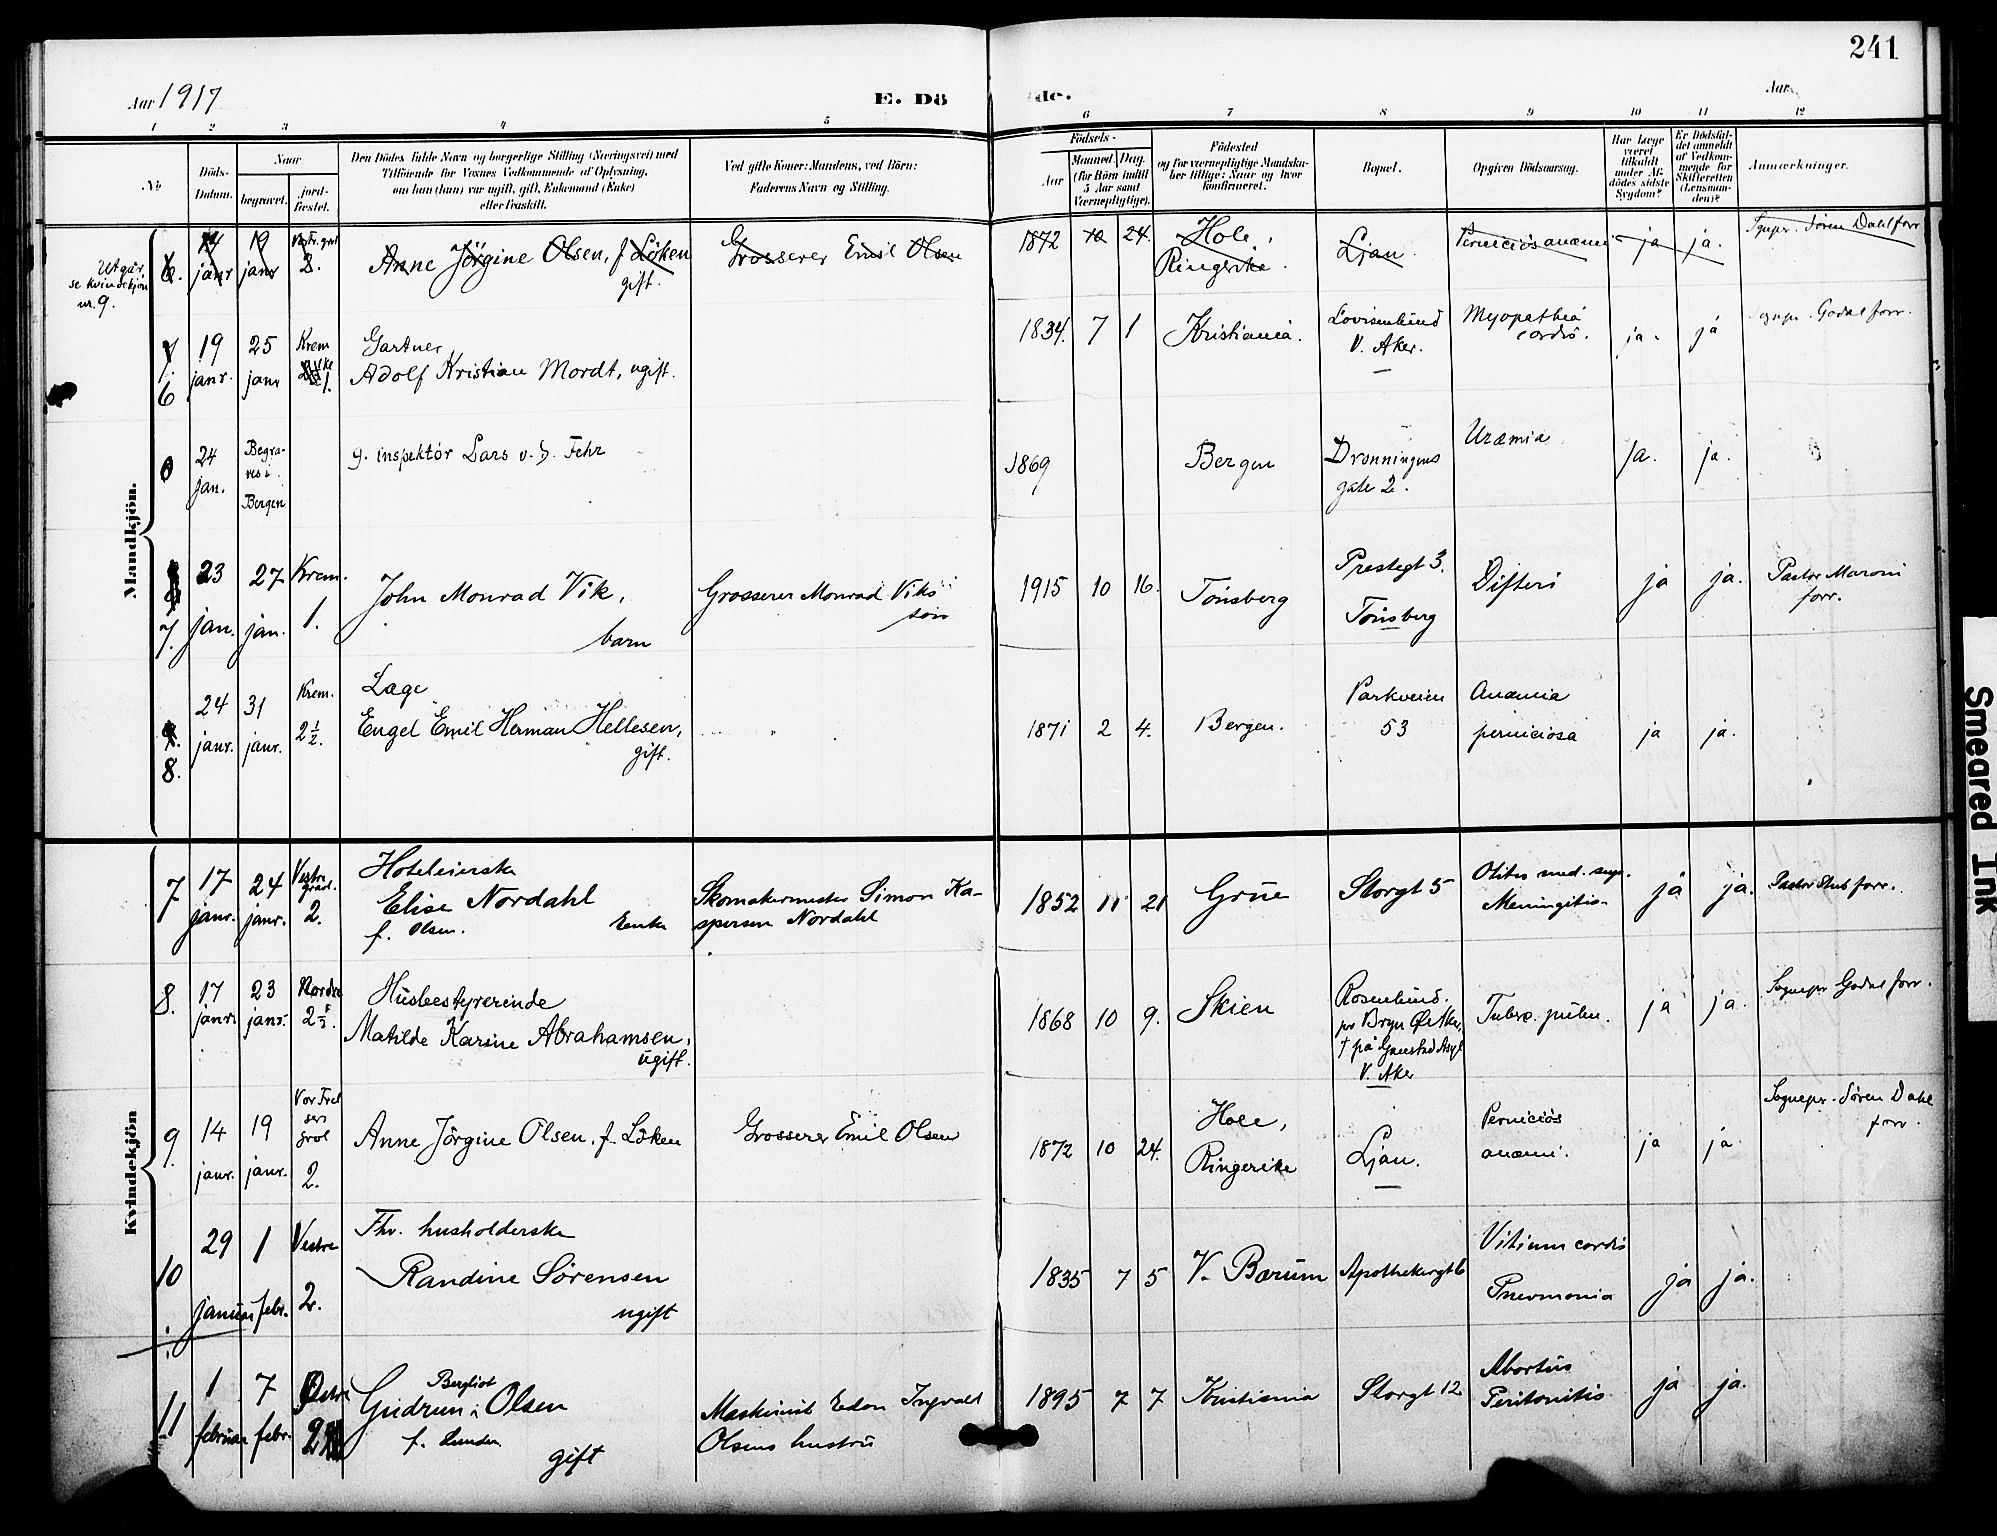 241
Aar 1917
E. Dö
de.
Aar
1 2 3 4 5 6 7 8 9 10 11 12
No
Döds-
Datum.
Naar
begravet.
jord-
fæstet.
Den Dödes fulde Navn og borgerlige Stilling (Næringsvei) med
Tilföiende for Voxnes Vedkommende af Oplysning,
om han (hun) var ugift, gift, Enkemand (Enke)
eller fraskilt.
Ved gifte Koner: Mandens, ved Börn:
Faderens Navn og Stilling.
Födsels-
Aar
Maaned. Dag.
(for Börn indtil
5 Aar samt
Værnepligtige).
Födested
og for værnepligtige Mandska-
ber tillige: Naar og hvor
konfirmeret.
Bopæl.
Opgiven Dödsaarsag.
Har Læge
været
tilkaldt
under Af-
dödes sidste
Sygdom?
Er Dödsfal-
det anmeldt
af Vedkom-
mende for
Skifteretten
(Lensman-
den)?
Anmærkninger.
Mandkjön.
Utgår,
se kvindekjön
nr. 9.
6. 14 janr 19 janr 2.
Anne Jörgine Olsen, f. Löken
gift.
Grosserer Emil Olsen
1872 10 24.
Hole,
Ringerike.
Ljan.
Perniciös anæmi
ja ja.
Sognepr. Sören Dahl forr
7.
6
19 janr. 25 janr Krem 1.
Gartner
Adolf Kristian Mordt, ugift.
1834. 7 1
Kristiania.
Lovisenlund
V. Aker.
Myopathia
cordis.
ja. ja
Sognepr. Godal forr.
0
24 jan.
Begra-
ves i
Bergen
g. inspektör Lars v. d. Fehr
1869
Bergen
Dronningens
gate 2.
Uræmia
Ja. ja.
7.
23 jan. 27 jan. Krem. 1.
John Monrad Vik,
barn
Grosserer Monrad Viks
sön
1915 10 16.
Tönsberg
Prestegt 3.
Tönsberg
Difteri
ja ja.
Pastor Maroni
forr.
8.
24 janr. 31 janr. Krem. 2½.
Læge
Engel Emil Herman Hellesen,
gift.
1871 2 4.
Bergen.
Parkveien
53
Anæmia
perniciosa
ja ja.
Kvindekjön
7
17 janr. 24 janr. Vestre
gravl.
2.
Hoteleierske
Elise Nordahl
f. Olsen. Enke
Skomakermester Simon Ka-
spersen Nordahl
1852 11 21
Grue
Storgt 5
Otites med. supp.
Meningitis
ja ja.
Pastor Stub forr.
8.
17 janr. 23 janr. Nordre
Husbestyrerinde
Matilde Karine Abrahamsen,
ugift.
1868 10 9.
Skien
Rosenlund.
pr Bryn Ø. Aker,
† på Gaustad Asyl
V. Aker
Tuberc. pulm.
ja ja.
Sognepr Godal forr.
9.
14 janr. 19 janr.
Vor Frel
sers
grvl
2.
Anne Jörgine Olsen, f. Löken
Grosserer Emil Olsen
1872 10 24.
Hole,
Ringerike
Ljan.
Perniciös
anæmi.
ja ja
Sognepr. Sören Dahl
forr.
10
29 januar 1 febr. Vestre
2.
Fhv. husholderske
Randine Sörensen
ugift
1835 7 5
V. Bærum
Apothekergt 6
Vitium cordis
Pneumonia
ja ja.
11
1 februar 7 febr. Østre
2
Bergliot
Gudrun Olsen
f. Lunden
gift
Maskinist Edon Ingvald
Olsens hustru
1895 7 7
Kristiania
Storgt 12
Abortus
Peritonitis
ja ja.
Smeared Ink